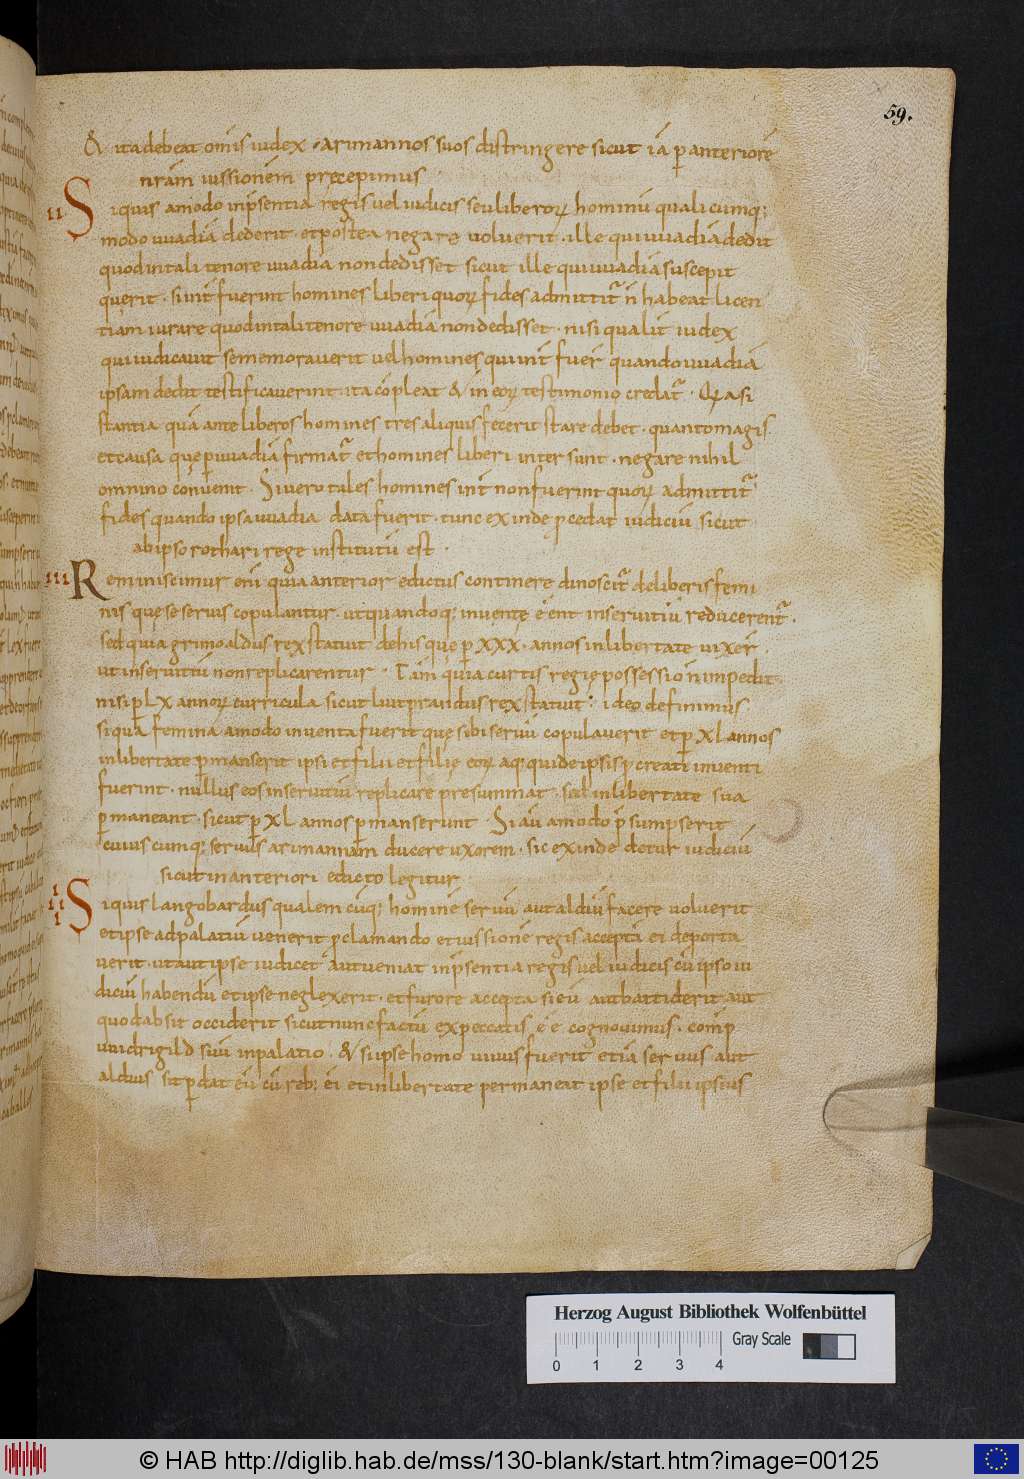 59.
& ita debeat om̄s iudex arimannos suos distringere sicut iā p anteriorē
nr̄am iussionem precepimus
II Siquis amodo inp̄sentia regis vel iudicis seu liberoꝝ hominū qualicumq;
modo vuadiā dederit · et postea negare voluerit · ille qui vuadiā dedit
quod in tali tenore vuadia non dedisset sicut ille qui vuadiā suscepit
querit · si int̄ fuerint homines liberi quoꝝ fides admittit̄ n̄ habeat licen
tiam iurare quod in tali tenore vuadiā non dedisset · nisi qualit̄ iudex
qui iudicavit se memoraverit vel homines qui int̄ fuer̄ quando vuadiā
ipsam dedit testificaverint · ita cōpleat & in eoꝝ testimonio credat̄ · Q̨a si
stantia quā ante liberos homines tres aliquis fecerit stare debet · quanto magis
et causa que p vuadiā firmat̄ et homines liberi inter sunt · negare nihil
omnino convenit · Si vero tales homines int̄ non fuerint quoꝝ admittit̄
fides quando ipsa vuadia data fuerit · tunc exinde ꝓcedat iudiciū sicut
ab ipso rothari rege institutū est ·
III Reminiscimur enī quia anterior edictus continere dinoscit̄ de liberis femi
nis quę se servis copulantur · ut quandoq; inventę ēēnt in servitiū reducerent̄ ·
sed quia grimoaldus rex statuit de his quę p XXX · annos in libertate vixer̄ ·
ut in servitiū non replicarentur · Tam̄ quia curtis regię possessio n̄ impedit
nisi p LX annoꝝ curricula sicut liutprandus rex statuit · ideo definimus
si qua femina amodo inventa fuerit quę sibi servū copulaverit et p XL annos
in libertate p manserit ipsi et filii et filię eoꝝ aq; quide ipsis ꝓcreati inventi
fuerint · nullus eos in servitiū replicare presummat · sed in libertate sua
p maneant · sicut p XL annos p manserunt · Si aū amodo p̄sumpserit
cuiuscumq; servus arimannam ducere uxorem · sic exinde detur iudiciū
sicut in anteriori edicto legitur
IIII Siquis langobardus qualem cūq; hominē servū aut aldiū facere voluerit
et ipse ad palatiū venerit ꝓclamando et iussionē regis acceptā ei deporta
verit · ut aut ipse iudicet aut veniat inp̄sentia regis vel iudicis cū ipso iu
diciū habendū et ipse neglexerit · et furore accepta si eū aut battiderit aut
quod absit occiderit sicut nunc factū ex peccatis ēē cognovimus · comp
vuidrigild suū in palatio · & si ipse homo vivus fuerit etiā servus aut
aldius sit pdat eū cū reb; ei et in libertate permaneat ipse et filii ipsius
Herzog August Bibliothek Wolfenbüttel
0 1 2 3 4
Gray Scale
© HAB http://diglib.hab.de/mss/130-blank/start.htm?image=00125